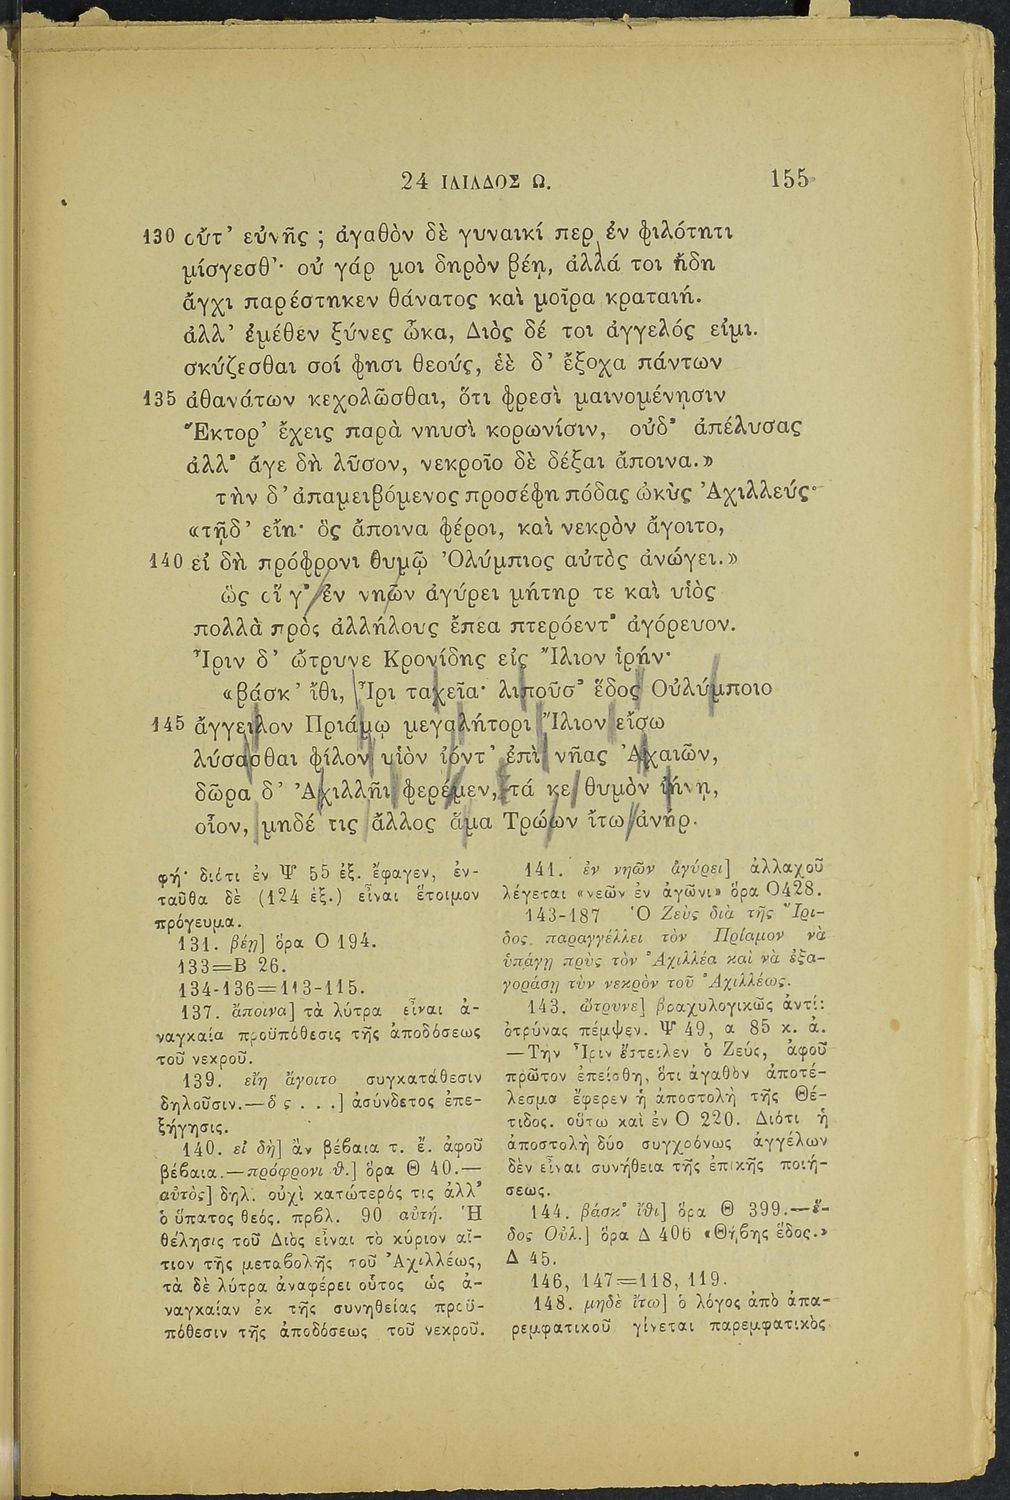 24 ΙΛΙΑΔΟΣ Ω. 155
130 οὔτ’ εὐνῆς ; ἀγαθὸν δὲ γυναικί περ ἐν φιλότητι
μίσγεσθ’· οὐ γάρ μοι δηρὸν βέῃ, ἀλλά τοι ἤδη
ἄγχι παρέστηκεν θάνατος καὶ μοῖρα κραταιή.
ἀλλ’ ἐμέθεν ξύνες ὦκα, Διὸς δέ τοι ἀγγελός εἰμι.
σκύζεσθαι σοί φησι θεούς, ἑὲ δ’ ἔξοχα πάντων
135 ἀθανάτων κεχολῶσθαι, ὅτι φρεσὶ μαινομένῃσιν
Ἕκτορ’ ἔχεις παρὰ νηυσὶ κορωνίσιν, οὐδ’ ἀπέλυσας
ἀλλ’ ἄγε δὴ λῦσον, νεκροῖο δὲ δέξαι ἄποινα.»
τὴν δ’ ἀπαμειβόμενος προσέφη πόδας ὠκὺς Ἀχιλλεύς·
«τῇδ’ εἴη· ὃς ἄποινα φέροι, καὶ νεκρὸν ἄγοιτο,
140 εἰ δὴ πρόφρονι θυμῷ Ὀλύμπιος αὐτὸς ἀνώγει.»
ὣς οἵ γ’ ἐν νηῶν ἀγύρει μήτηρ τε καὶ υἱὸς
πολλὰ πρὸς ἀλλήλους ἔπεα πτερόεντ’ ἀγόρευον.
Ἶριν δ’ ὤτρυνε Κρονίδης εἰς Ἴλιον ἱρήν·
«βάσκ’ ἴθι, Ἶρι ταχεῖα· λιποῦσ’ ἕδος Οὐλύμποιο
145 ἄγγειλον Πριάμῳ μεγαλήτορι Ἴλιον εἴσω
λύσασθαι φίλον υἱὸν ἰόντ’ ἐπὶ νῆας Ἀχαιῶν,
δῶρα δ’ Ἀχιλλῆι φερέμεν, τά κε θυμὸν ἰήνῃ,
οἶον, μηδέ τις ἄλλος ἅμα Τρώων ἴτω ἀνήρ.
φή· διότι ἐν Ψ 55 ἐξ. ἔφαγεν, ἐν-
ταῦθα δὲ (124 ἐξ.) εἶναι ἕτοιμον
πρόγευμα.
131. βέῃ] ὅρα Ο 194.
133=Β 26.
134-136=113-115.
137. ἄποινα] τὰ λύτρα εἶναι ἀ-
ναγκαία προϋπόθεσις τῆς ἀποδόσεως
τοῦ νεκροῦ.
139. εἴη ἄγοιτο συγκατάθεσιν
δηλοῦσιν.—ὃς . . .] ἀσύνδετος ἐπε-
ξήγησις.
140. εἰ δὴ] ἂν βέβαια τ. ἔ. ἀφοῦ
βέβαια.—πρόφρονι θ.] ὅρα Θ 40.—
αὐτὸς] δηλ. οὐχὶ κατώτερός τις ἀλλ’
ὁ ὕπατος θεός. πρβλ. 90 αὐτή. Ἡ
θέλησις τοῦ Διὸς εἶναι τὸ κύριον αἴ-
τιον τῆς μεταβολῆς τοῦ Ἀχιλλέως,
τὰ δὲ λύτρα ἀναφέρει οὗτος ὡς ἀ-
ναγκαίαν ἐκ τῆς συνηθείας προϋ-
πόθεσιν τῆς ἀποδόσεως τοῦ νεκροῦ.
141. ἐν νηῶν ἀγύρει] ἀλλαχοῦ
λέγεται «νεῶν ἐν ἀγῶνι» ὅρα Ο428.
143-187 Ὁ Ζεὺς διὰ τῆς Ἴρι-
δος παραγγέλλει τὸν Πρίαμον νὰ
ὑπάγῃ πρὸς τὸν Ἀχιλλέα καὶ νὰ ἐξα-
γοράσῃ τὸν νεκρὸν τοῦ Ἀχιλλέως.
143. ὤτρυνε] βραχυλογικῶς ἀντί:
ὀτρύνας πέμψεν. Ψ 49, α 85 κ. ἀ.
—Τὴν Ἶριν ἔστειλεν ὁ Ζεύς, ἀφοῦ
πρῶτον ἐπείσθη, ὅτι ἀγαθὸν ἀποτέ-
λεσμα ἔφερεν ἡ ἀποστολὴ τῆς Θέ-
τιδος. οὕτω καὶ ἐν Ο 220. Διότι ἡ
ἀποστολὴ δύο συγχρόνως ἀγγέλων
δὲν εἶναι συνήθεια τῆς ἐπικῆς ποιή-
σεως.
144. βάσκ’ ἴθι] ὅρα Θ 399.—ἕ-
δος Οὐλ.] ὅρα Δ 406 «Θήβης ἕδος.»
Δ 45.
146, 147=118, 119.
148. μηδὲ ἴτω] ὁ λόγος ἀπὸ ἀπα-
ρεμφατικοῦ γίνεται παρεμφατικὸς